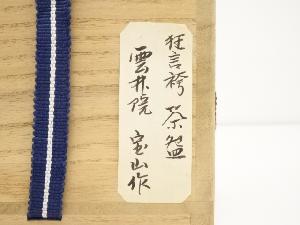 狂言袴 茶盌
雲林院 宝山作